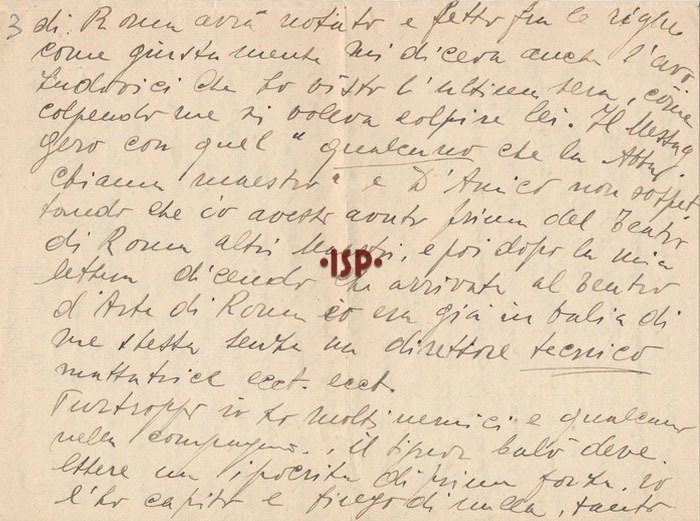 3
di Roma avrà notato e letto fra le righe
come giustamente mi diceva anche l'avv.
Ludovici che ho visto l'ultima sera, come
colpendo me si voleva colpire lei. Il Messag
gero con quel "qualcuno che la Abba
chiama maestro" e D'Amico non sospet
tando che io avessi avuto prima del Teatro
di Roma altri Maestri, e poi dopo la mia
lettera dicendo che arrivata al Teatro
d'Arte di Roma io era già in balia di
me stessa senza un direttore tecnico
mattatrice ecct. ecct.
Purtroppo io ho molti nemici e qualcuno
nella compagnia, il signor deve
essere un ipocrita di prima forza. io
l'ho capito e fingo di nulla, tanto
ISP